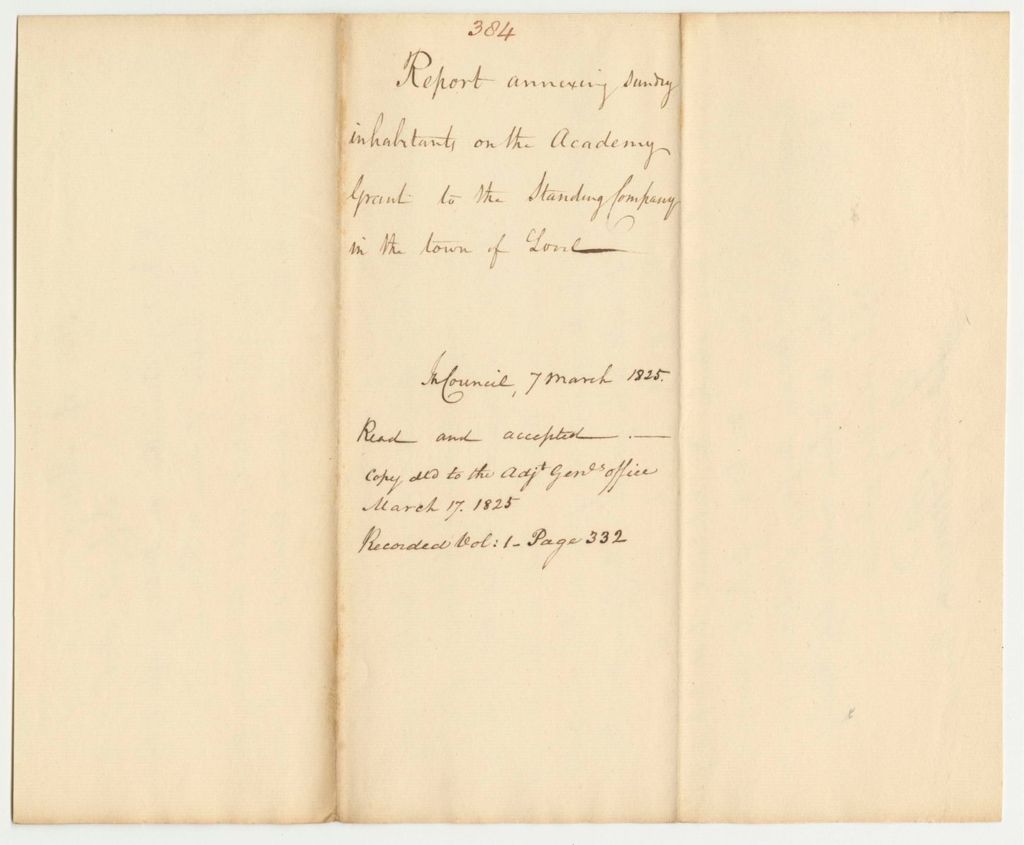 384
Report annexing sundry
inhabitants on the Academy
Grant to the Standing Company
in the town of Lovel
In Council, 7 March 1825.
Read and accepted. —
Copy dld to the Adjt Genls office
March 17. 1825
Recorded Vol: 1 - Page 332